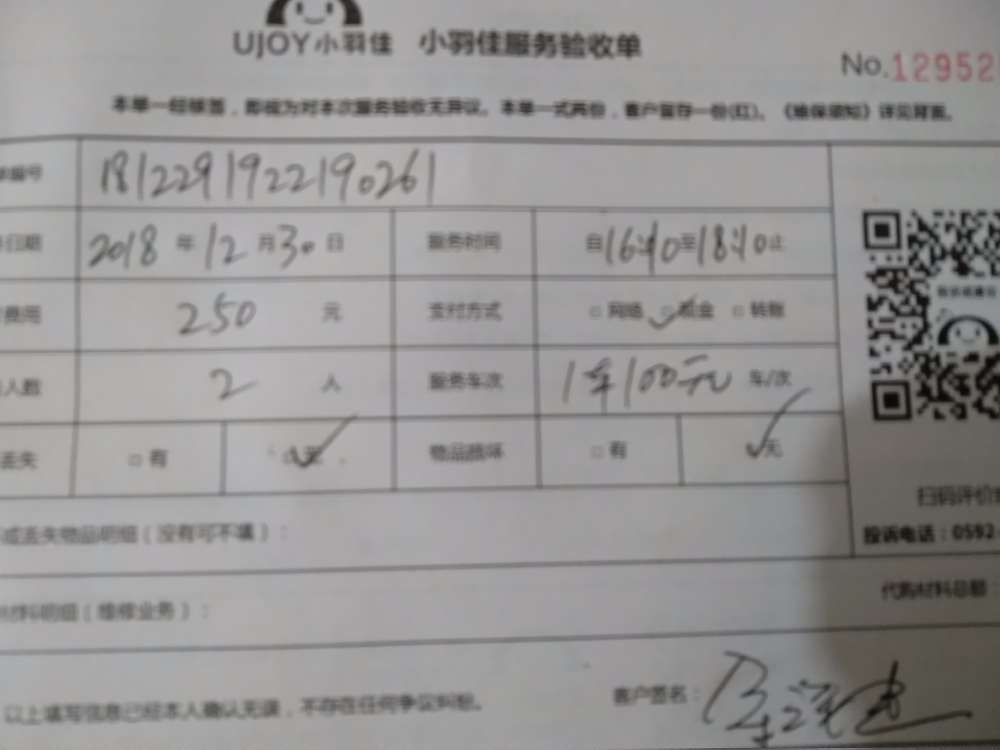 UJOY小羽佳 小羽佳服务验收单
No.12952
本单一经核签，即视为对本次服务验收无异议。本单一式两份，客户留存一份(红)。《维保须知》详见背面。
编号 1812291922190261
日期 2018 年 12 月 30 日 服务时间 自16:40至18:40止
费用 250 元 支付方式 □网络 ☑现金 □转账
人数 2 人 服务车次 1车100元 车/次
丢失 □有 ☑无 物品损坏 □有 ☑无
扫码评价
或丢失物品明细（没有可不填）：
投诉电话：0592-
材料明细（维修业务）：
代购材料总额：
以上填写信息已经本人确认无误，不存在任何争议纠纷。 客户签名：